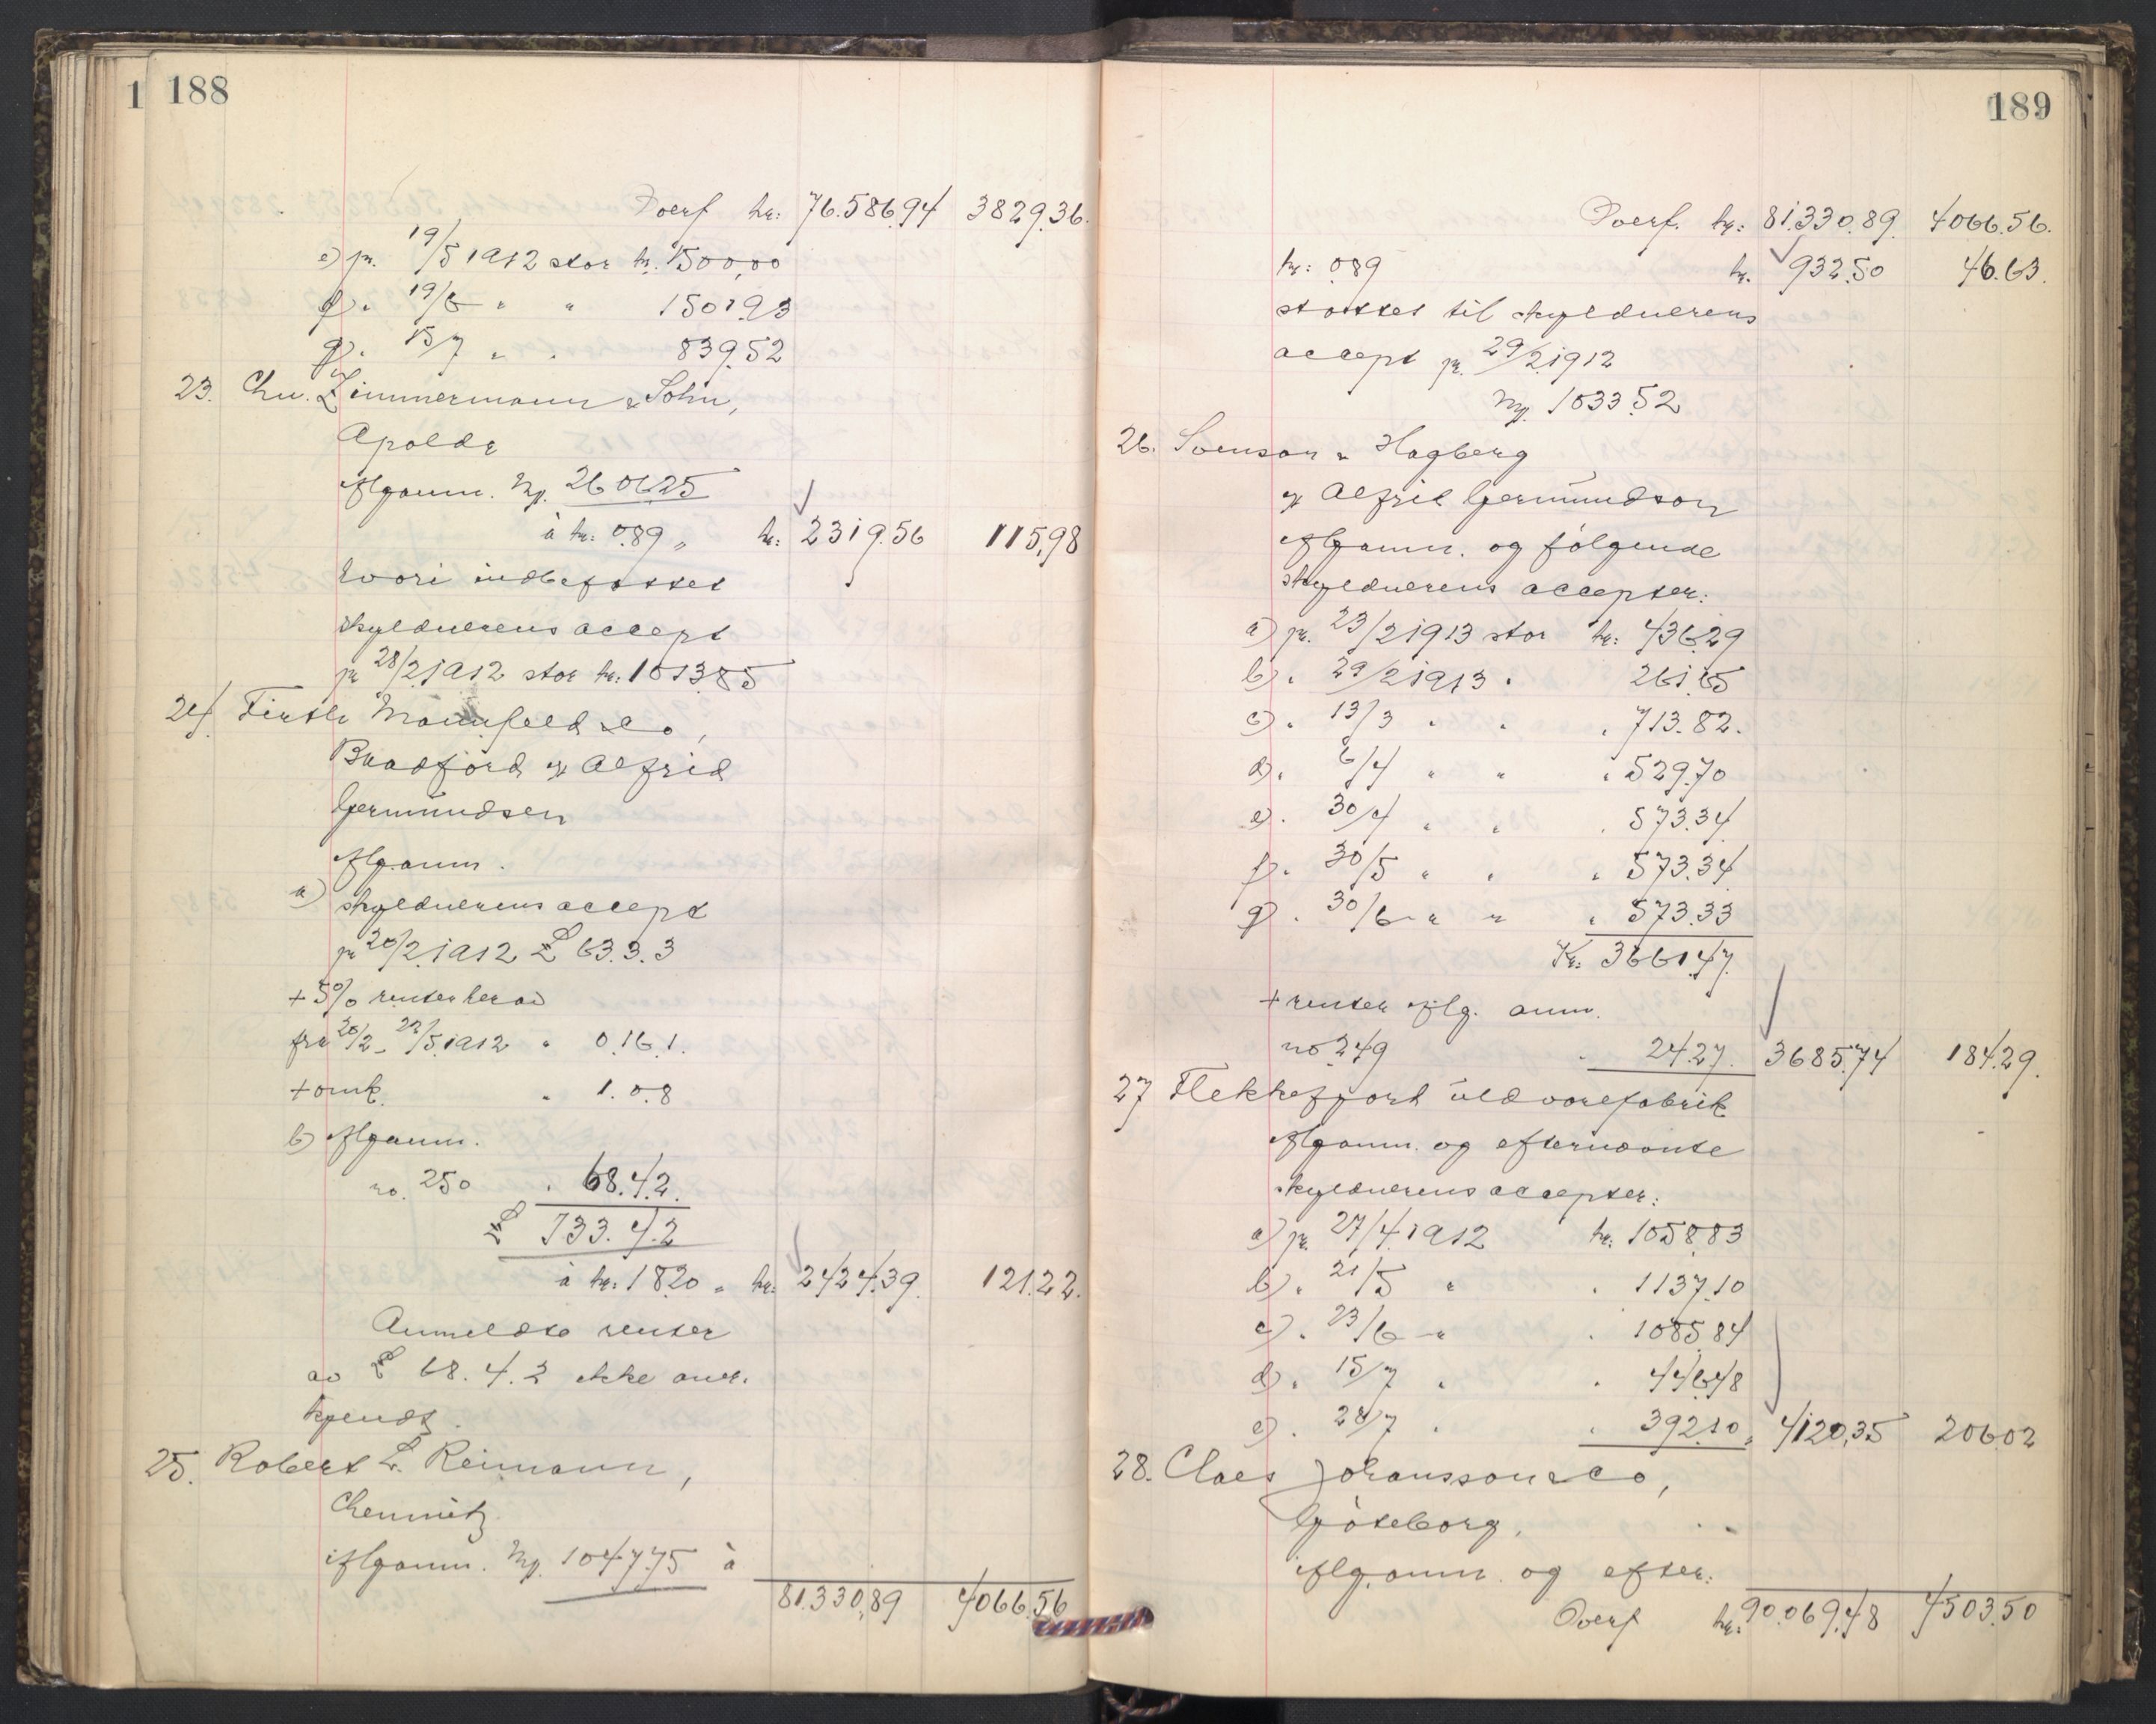 1 188
Overf kr: 76.586.94 3829.36.
e) pr. 19/5 1912 stor kr. 1500,00
f) " 19/6 " " 1501.93
g) " 15/7 " " 839.52
23. Chr. Zimmermann & Sohn,
Apolda
iflg anm. Mk. 2606.25
à kr: 0.89 " kr: 2319.56 115,98
hvori indbefattet
skyldnerens accept
pr 28/2 1912 stor kr: 1013.85
24. Firth Mannfeld & Co,
Bradford v/ Alfrid
Germundsen
iflg. anm.
a) skyldnerens accept
pr 20/2. 1912 £ 63.3.3
+ 5% renter herav
fra 20/2 - 22/5. 1912 " 0.16.1.
+ omk. " 1.0.8
b) iflg anm.
no. 250 " 68.4.2.
£ 133.4.2
à kr: 18.20 " kr. 2424.39. 121.22.
Anmeldte renter
av £ 68.4.2 ikke aner-
kjendt.
25. Robert L. Reimann,
Chemnitz.
iflg anm. Mk. 1047.75 à
81.330,89 4066.56
189
Overf. kr: 81.330.89. 4066.56.
kr: 0.89 kr. 932.50 46.63.
støttet til skyldnerens
accept pr. 29/2 1912
Mk. 1033.52
26. Svenson & Hagberg
v/ Alfrid Germundson
iflg anm. og følgende
skyldnerens accepter:
a) pr. 23/2 1913 stor kr: 436.29
b) " 29/2 1913 " 261.65
c) " 13/3 " " " 713.82.
d) " 6/4 " " " 529.70
e) " 30/4 " " " 573.34
f) " 30/5 " " " 573.34
g) " 30/6 " " " 573.33
Kr: 3661.47.
+ renter iflg. anm.
no 249 " 24.27. 3685.74 184.29.
27 Flekkefjord uldvarefabrik
iflg anm. og efternævnte
skyldnerens accepter:
a) pr. 27/4. 1912 kr: 1058.83
b) " 21/5 " " 1137.10
c) " 23/6 " " 1085.84
d) " 15/7 " " 446.48
e) " 28/7 " " 392.10 " 4120,35 206.02
28. Claes Johansson & Co,
Göteborg,
iflg. anm. og efter-
Overf kr: 90.069.48 4503.50